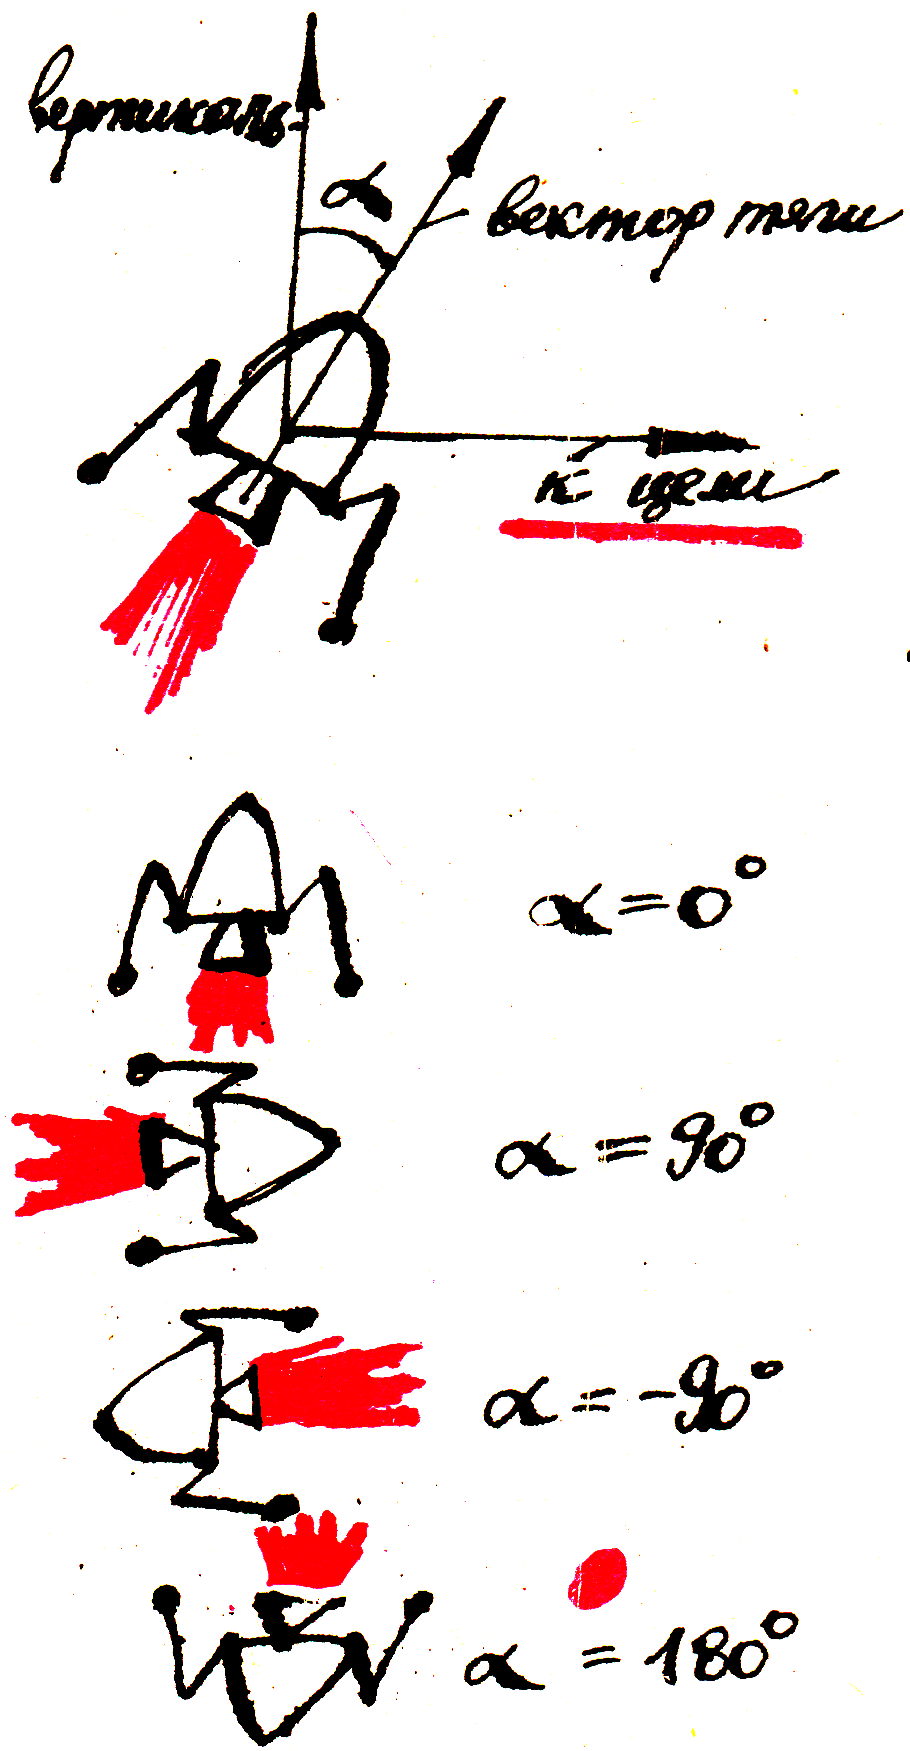 вертикаль
α
вектор тяги
к цели
α = 0°
α = 90°
α = -90°
α = 180°